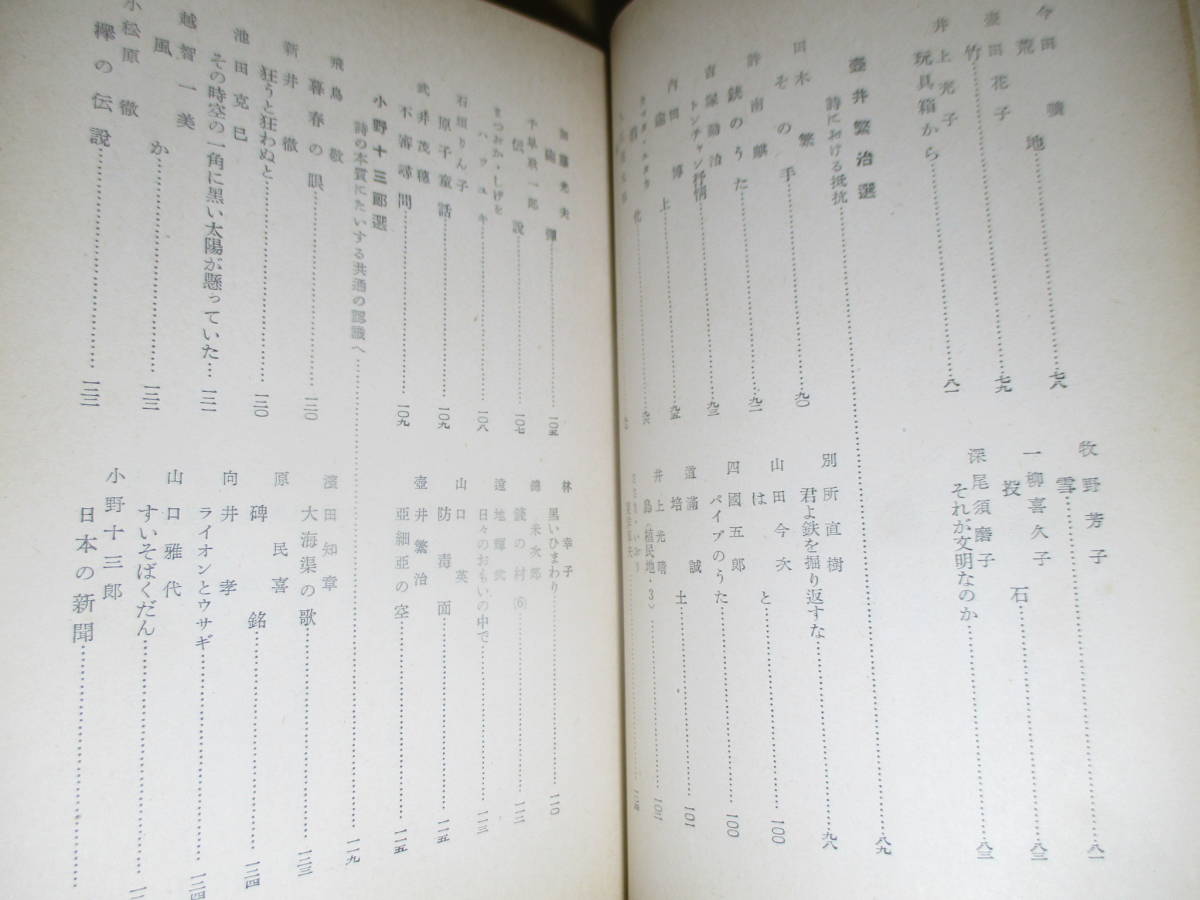 今田
荒地……七八
壺田花子
竹……七九
井上充子
玩具箱から……八一
牧野芳子
雪……八一
一柳喜久子
投石……八三
深尾須磨子
それが文明なのか……八三
壺井繁治選
詩における抵抗……八九
田木繁
その手……九〇
許南麒
銃のうた……九二
吉塚勤治
トンチャン抒情……九三
内田博
上……九五
化……九六
別所直樹
君よ鉄を掘り返すな……九八
山田今次
はと……一〇〇
四國五郎
パイプのうた……一〇〇
道満誠
培土……一〇一
井上光晴
島(植民地・3)……一〇二
……一〇五
伝説……一〇七
まつおか・しげを
ハツユキ……一〇八
石垣りん子
原子童話……一〇九
武井茂穂
不審尋問……一〇九
林幸子
黒いひまわり……一一〇
錢の村(6)……一一二
遠地輝武
日々のおもいの中で……一一三
山口英
防毒面……一一五
壺井繁治
亜細亜の空……一一五
小野十三郎選
詩の本質にたいする共通の認識へ……一一九
飛鳥敬
暮春の眼……一二〇
新井徹
狂うと狂わぬと……一二〇
池田克巳
その時空の一角に黒い太陽が懸っていた…一二一
越智一美
風か……一二二
小松原徹
欅の伝説……一二二
濱田知章
大海渠の歌……一二三
原民喜
碑銘……一二四
向井孝
ライオンとウサギ……一二四
山口雅代
すいそばくだん……
小野十三郎
日本の新聞……